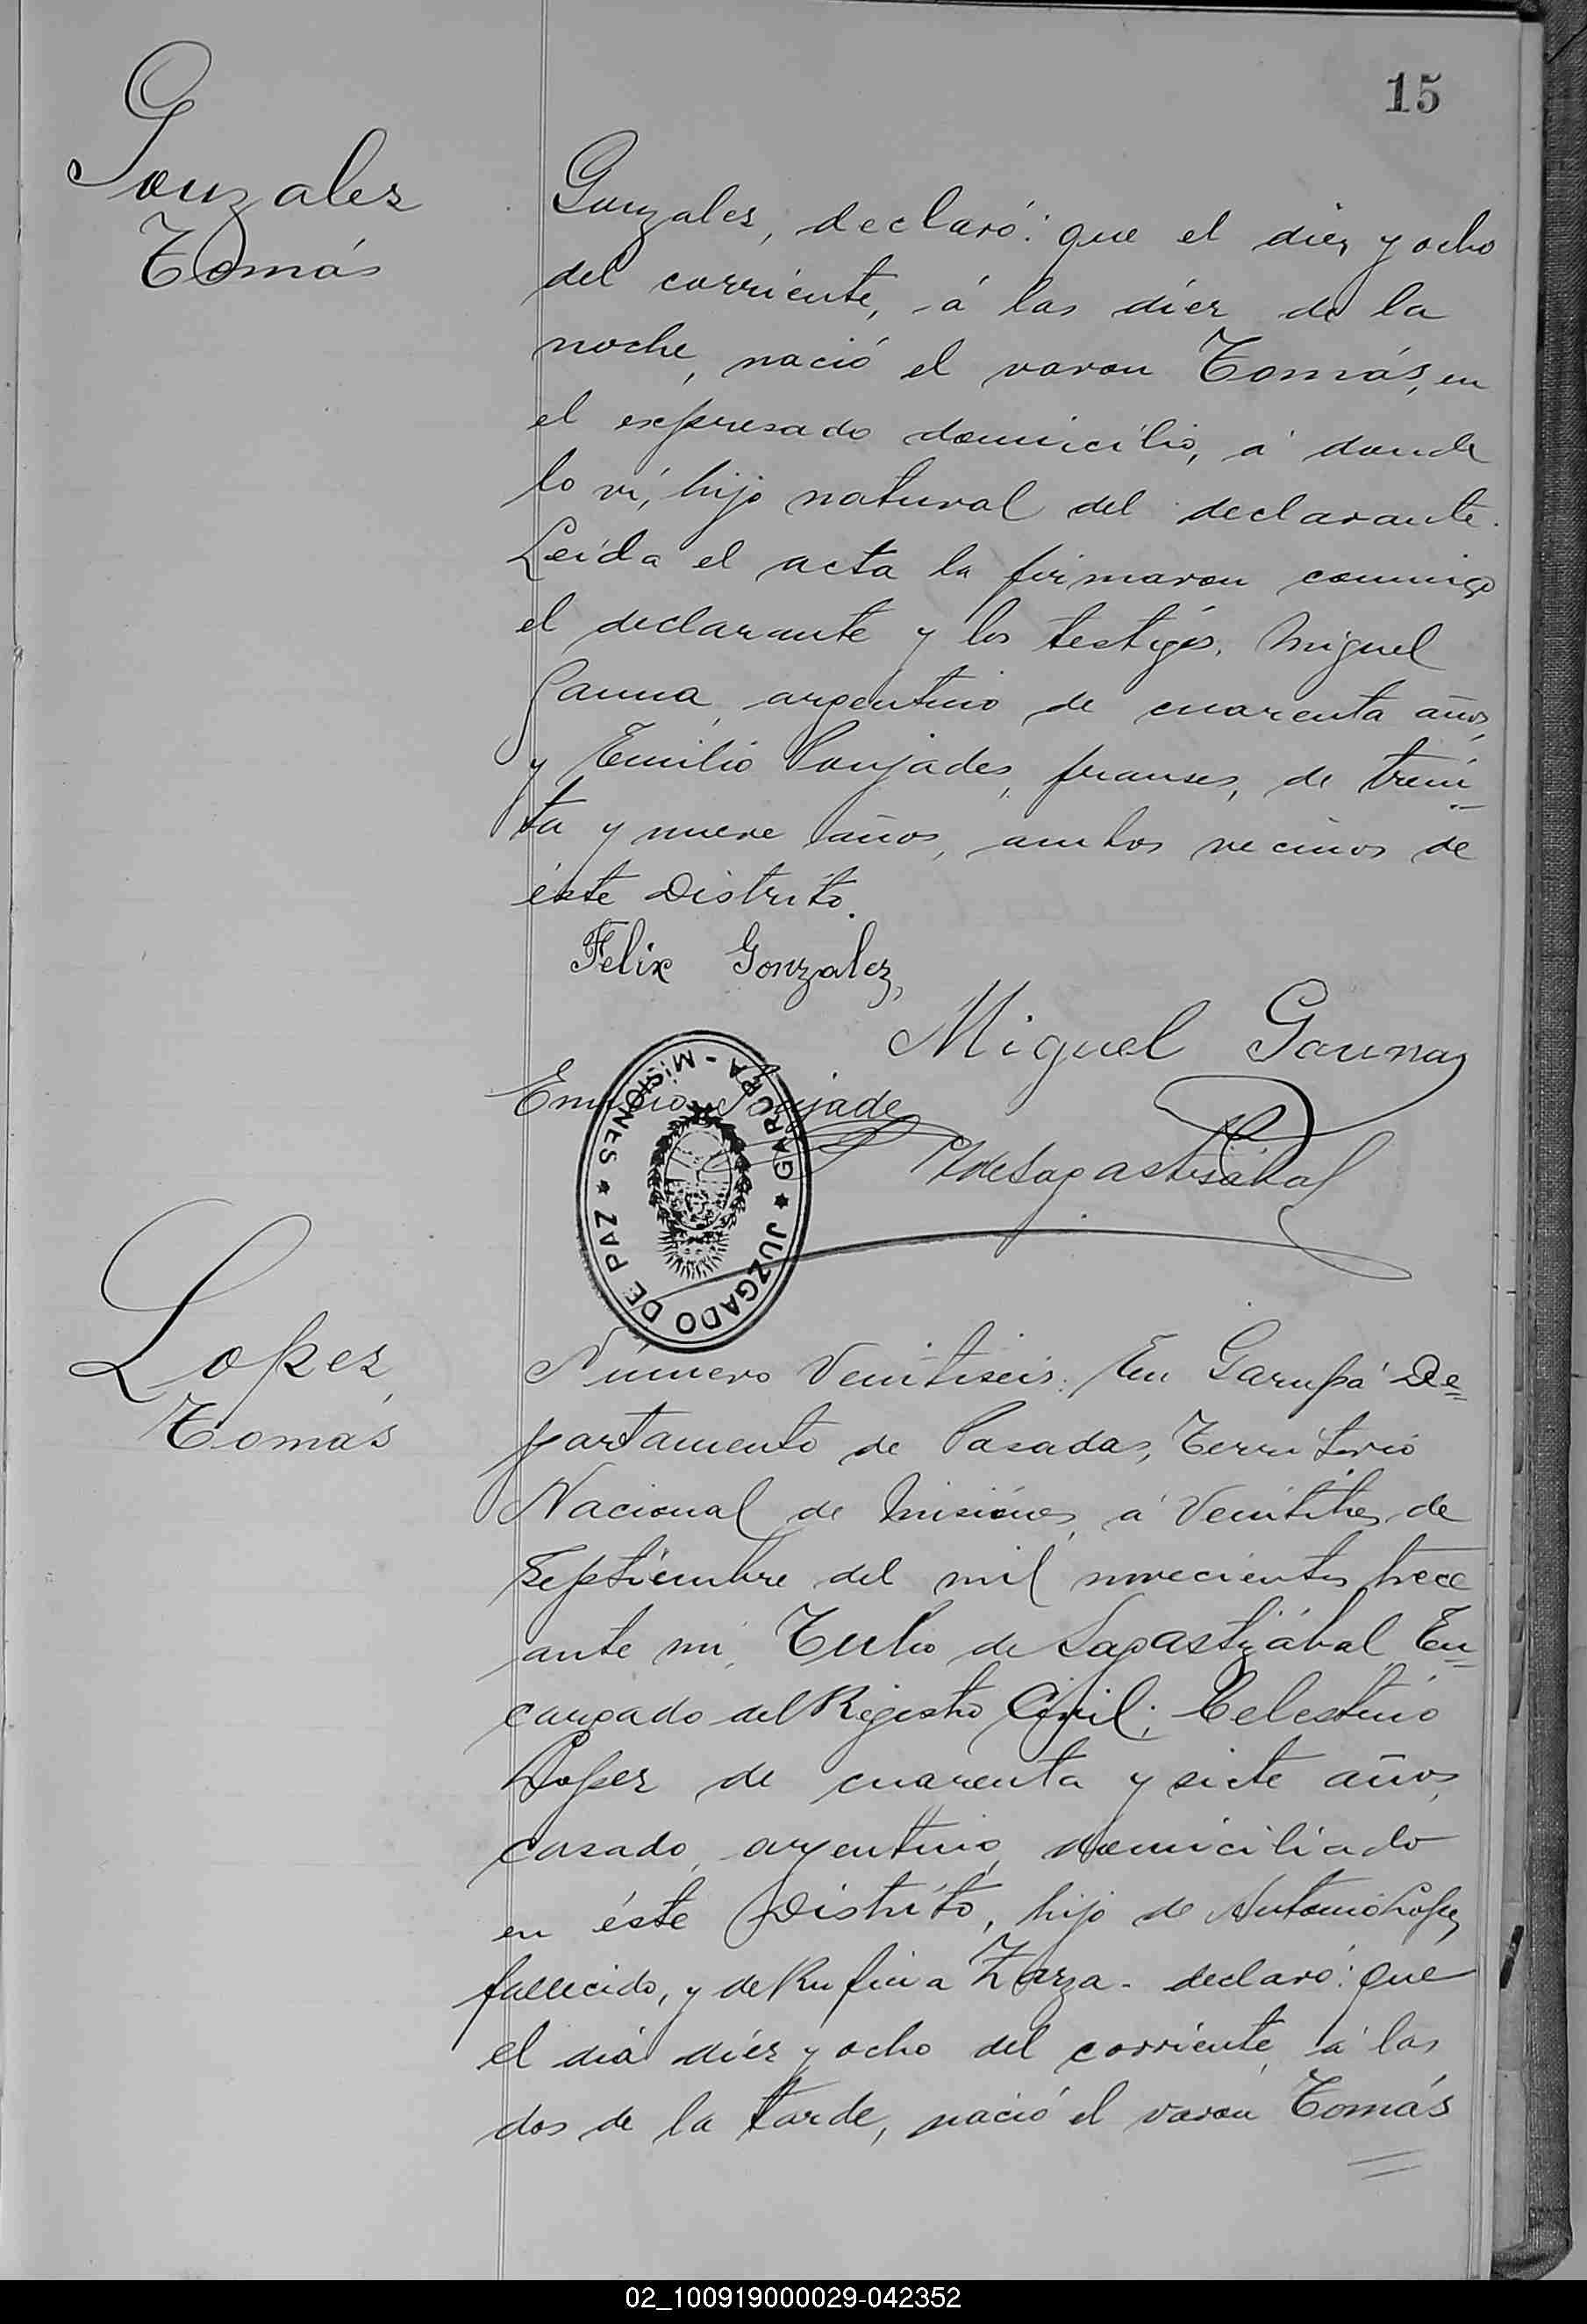 15
Gonzales
Tomás
Gonzales, declaró: que el diez y ocho
del corriente, á las diez de la
noche, nació el varon Tomás, en
el expresado domicilio, á donde
lo ví, hijo natural del declarante.
Leída el acta la firmaron conmigo
el declarante y los testigos, Miguel
Gauna, argentino de cuarenta años,
y Emilio Poujades, franses, de trein
ta y nueve años, ambos vecinos de
éste Distrito.
Felix Gonzalez,
Miguel Gauna
Emilio Poujade
TdeSagastisábal
JUZGADO DE PAZ * MISIONES - GARUPA *
Lopez,
Tomás
Número Veintiseis. En Garupá De=
partamento de Posadas, Territorio
Nacional de Misiónes, á Veintitres de
Septiembre del mil novecientos trece
ante mi, Tulio de Sagastizábal, En=
cargado del Registro Civil; Celestino
Lopez de cuarenta y siete años,
casado, argentino, domiciliado
en éste Distrito, hijo de Antonio Lopez,
fallecido, y de Rufina Zarza - declaró: que
el día diéz y ocho del corriente, á las
dos de la tarde, nació el varon Tomás
02_100919000029-042352